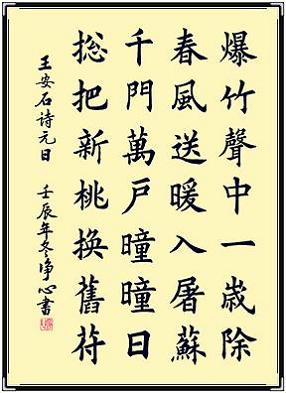 爆竹聲中一歲除
春風送暖入屠蘇
千門萬戶曈曈日
捴把新桃換舊苻
王安石诗元日 壬辰年冬净心書